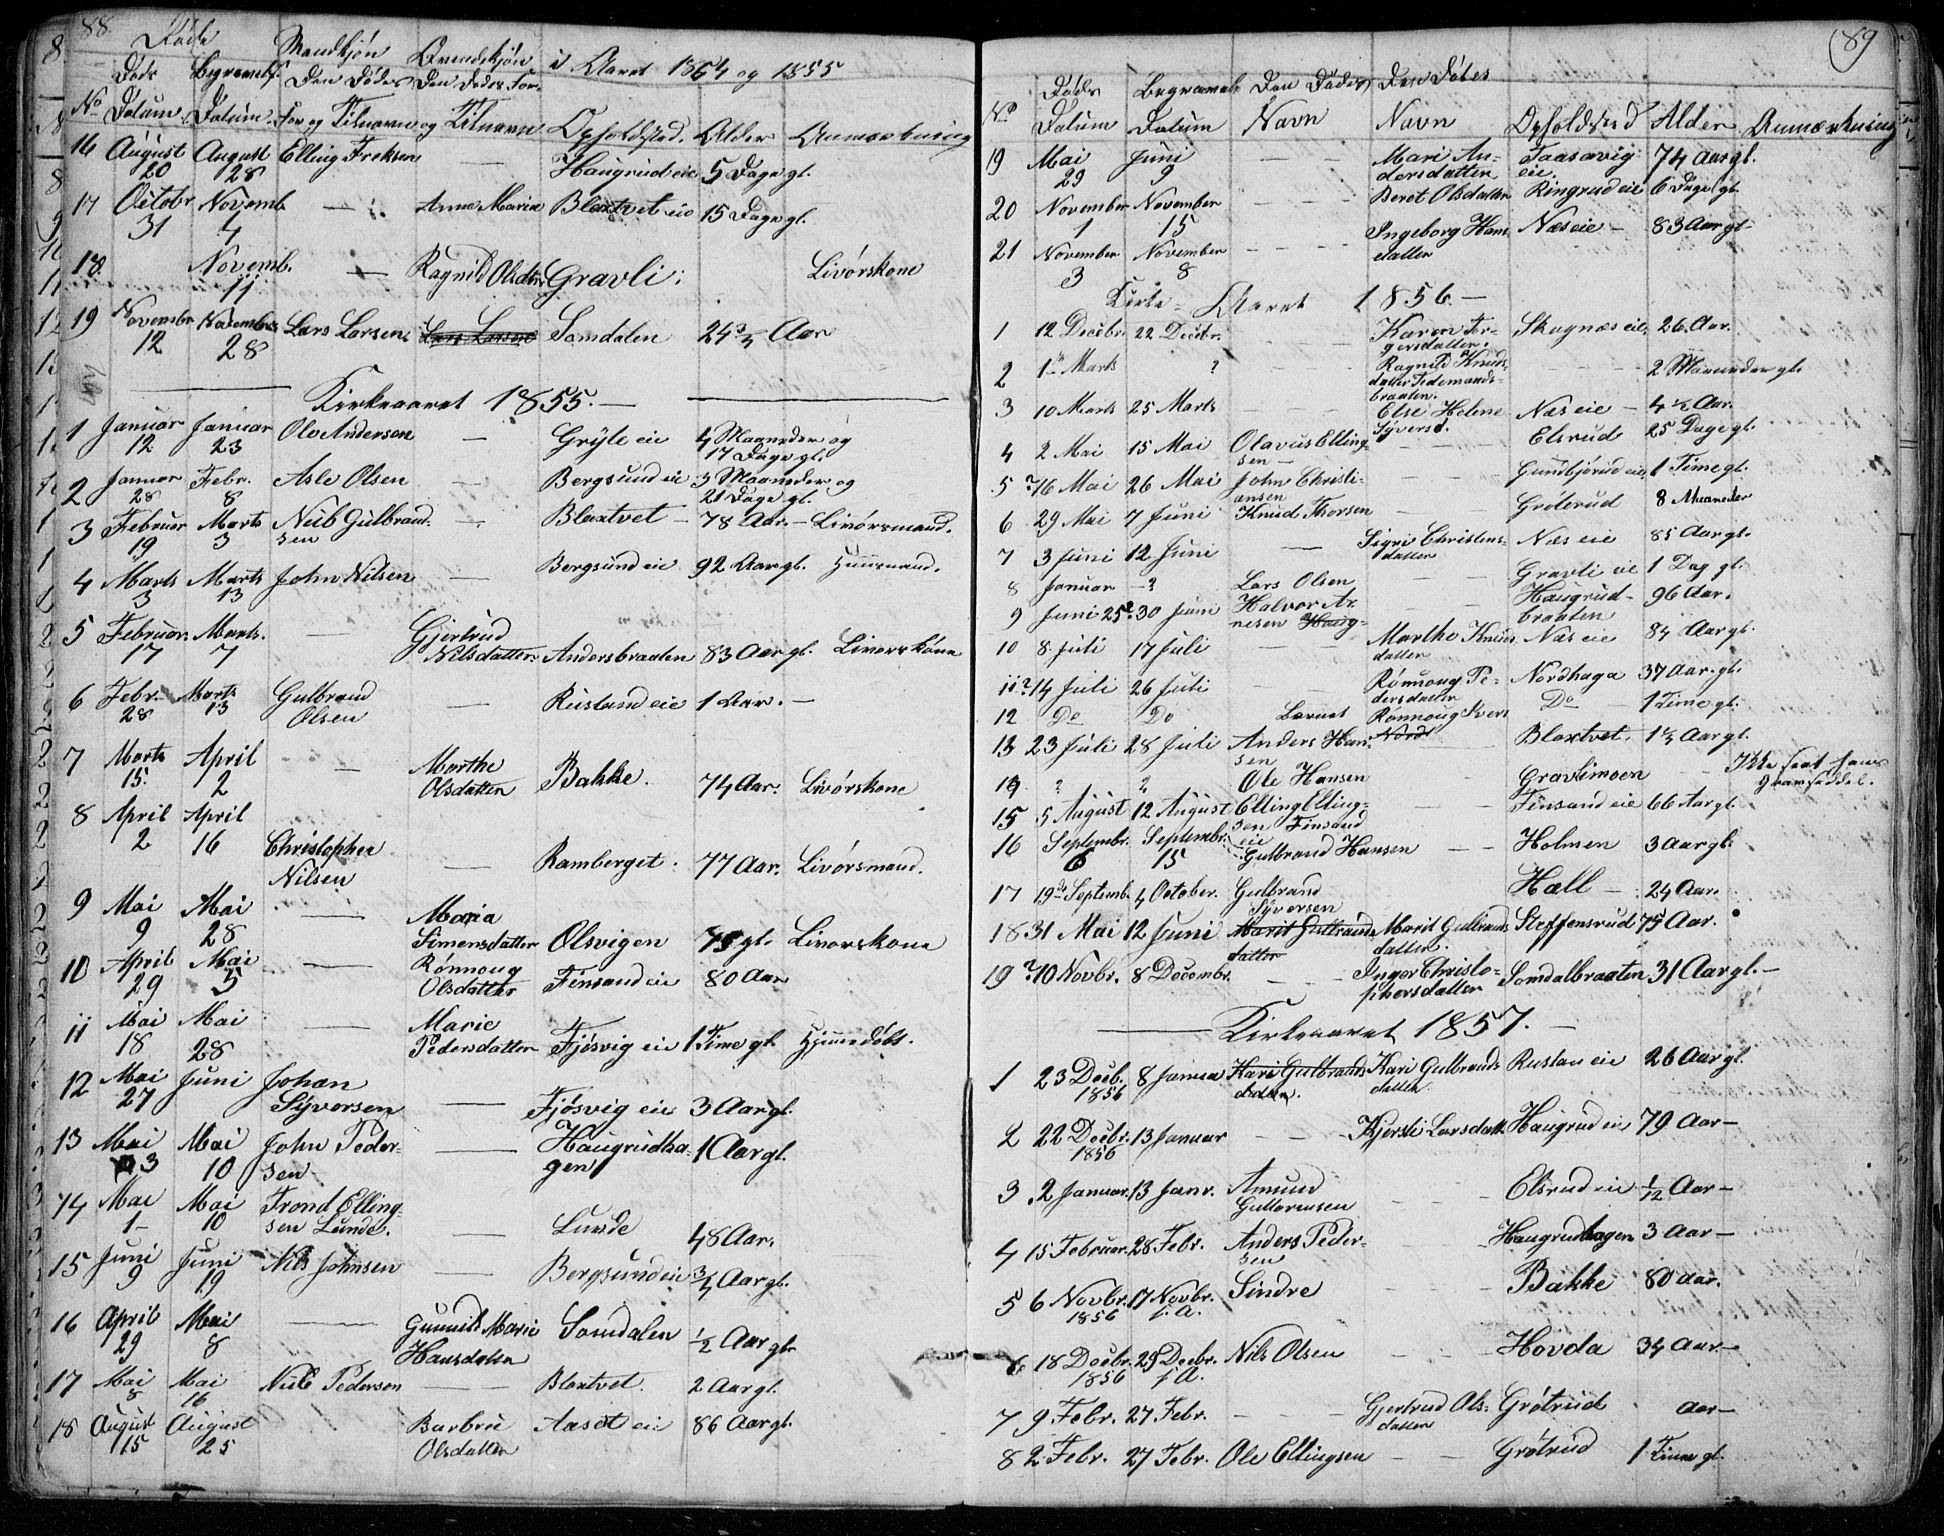 88.
Døde Mandkjøn Qvindekjøn i Aaret 1854 og 1855
Døds Begravels. Den Dødes Den Dødes For-
No Datum Datum For og Tilnavn og Tilnavn Opholdsted. Alder Anmærkning
16 August 20 August 28 Elling — Haugrud eie 5 Dage gl.
17 Octobr 31 Novemb. 4 — Anne Maria Bloxtvet eie 15 Dage gl.
18. Novemb. 11 — Ragnild Olsdtr. Gravli. Livørskone
19 Novembr 12 Novembr 28 Lars Larsen Lars Larsen Somdalen 24 3/4 Aar
Kirkeaaret 1855.—
1 Januar 12 Januar 23 Ole Andersen — Gryte eie 4 Maaneder og 17 Dage gl.
2 Januar 28 Febr. 8 Asle Olsen — Bergsund eie 3 Maaneder og 21 Dage gl.
3 Februar 19 Marts 3 Niib Gulbrandsen — Bloxtvet — 78 Aar. — Livørsmand.
4 Marts 3 Marts 13 John Nilsen — Bergsund eie 92 Aar gl. Huusmand.
5 Februar 17 Marts. 7 — Gjertrud Nilsdatter Andersbraaten 83 Aar gl. Livørskone
6 Febr. 28 Marts 13 Gulbrand Olsen — Rustand eie 1 Aar. —
7 Marts 15. April 2 — Marthe Olsdatter Bakke. 74 Aar. Livørskone
8 April 2 April 16 Christopher Nilsen — Ramberget. 77 Aar. Livørsmand.
9 Mai 9 Mai 28 — Maria Simensdatter Olsvigen 75 gl. Livørskone
10 April 29 Mai 5 — Rønnoug Olsdatter Finsand eie 80 Aar
11 Mai 18 Mai 28 — Marie Pedersdatter Fjøsvig eie 1 Time gl. Hjemmedøbt.
12 Mai 27 Juni Johan Syversen — Fjøsvig eie 3 Aar gl.
13 Mai 3 Mai 10 John Pedersen — Haugrudhagen 1 Aar gl.
14 Mai 1— Mai 10 Trond Ellingsen Lunde. — Lunde 48 Aar.
15 Juni 9 Juni 19 Nils Johnsen — Bergsund eie 3/4 Aar gl.
16 April 29 Mai 8 — Gunnild Marie Hansdatter Somdalen 1/2 Aar gl.
17 Mai 8 Mai 16 Niib Pedersen — Bloxtvet. 2 Aar gl.
18 August 15 August 25 Barbroe Olsdatter Aasæt eie 86 Aar gl.
89
Døds Begravel. Den Dødes Den Dødes
No Datum Datum Navn Navn Opholdsted Alder Anmærkning
19 Mai 29 Juni 9 — — Mari Andersdatter Taasavig eie. 74 Aar gl.
20 November 1 November 15 — — — Beret Olsdatter Ringrud eie 6 Dage gl.
21 November 3 November 8 — — — Ingeborg Hansdatter Næs eie — 83 Aar gl.
Kirke- Aaret 1856.—
1 12 Decbr. 22 Decbr. — — Karen Torgersdatter. Skagnæs eie 26 Aar.
2 1 Marts ? Ragnild Knudsdatter Tidemandsbraaten. — — 2 Maaneder gl.
3 10 Marts 25 Marts — — — Else Helene Syversd. Næs eie — 4 1/2 Aar.
4 2 Mai 15 Mai Olavus Ellingsen — — — Elsrud 25 Dage gl.
5 ?16 Mai 26 Mai John Christiansen — — Gundbjørud eie 1 Time gl.
6 29 Mai 7 Juni Knud Thorsen — — Grøterud 8 Maaneder
7 3 Juni 12 Juni — Sigri Christensdatter Næs eie 85 Aar gl.
8 Januar —? Lars Olsen — — Gravli eie 1 Dag gl.
9 Juni 25? 30 Juni Halvor Arnesen Haug- — — Haugrudbraaten 96 Aar.
10 8. Juli 17 Juli — — Marthe Knudsdatter Næs eie 84 Aar gl.
11 ?14 Juli 26 Juli — — Rønnoug Pedersdatter Nordhaga 37 Aar. gl.
12 Do Do Barnet Rønnoug Ivers Do — 1 Time gl.
13 23 Juli 28 Juli Anders Hansen Nords — Bloxtvet. 1 3/4 Aar gl.
14 ? ? Ole Hansen — — Gravlimoen — Ikke seet hans Gravseddel.
15 5 August 12 August Elling Ellingsen Finsand eie — — Finsand eie 66 Aar gl.
16 Septembr. 6 Septembr. 15 Gulbrand Hansen — — Holmen 3 Aar gl.
17 19de Septemb. 4 October. Gulbrand Syversen Hæll — 24 Aar.
18 31 Mai 12 Juni Marit Gulbrandsdatter Marit Gulbrandsdatter Steffensrud 75 Aar.
19 ?10 Novbr. 8 Decembr. — — Inger Christophersdatter Somdalbraaten 31 Aar gl. —
— Kirkeaaret 1857. —
1 23 Decb. 1856 8 Janua Kari Gulbrandsdatter Kari Gulbrandsdatter Rustan eie 26 Aar gl.
2 22 Decbr. 1856 13 Januar — — Kjersti Larsdatt. Haugrud eie 79 Aar —
3 2 Januar. 13 Janr. Amund Guttormsen — — Elsrud eie 1/12 Aar —
4 15 Februar. 28 Febr. Anders Pedersen — — Haugrudhagen 3 Aar —
5 6 Novbr. 1856 17 Novbr. f. A. Sindre Bakke 80 Aar.
6 18 Decbr. 1856 29 Decbr. f. A. Nils Olsen — — Hovda 34 Aar —
7 9 Febr. 27 Febr. — — — Gjertrud Olsdatter Grøtrud Aar —
8 2 Febr. 27 Febr. Ole Ellingsen — — Grøtrud 1 Time gl.